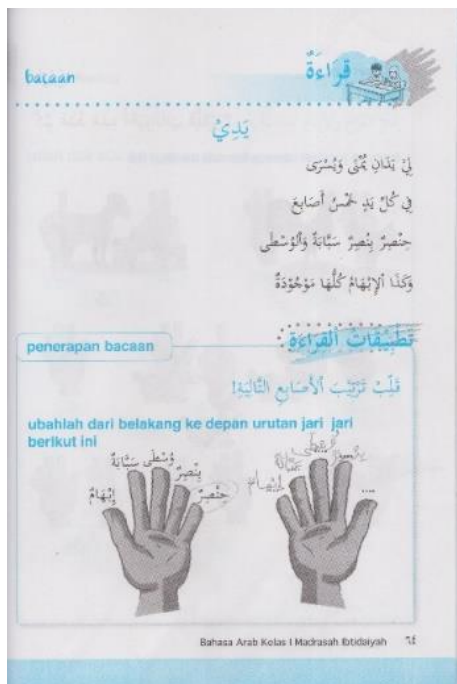 قِرَاءَةٌ
bacaan
يَدِيْ
لِيْ يَدَانِ يُمْنَى وَيُسْرَى
فِي كُلِّ يَدٍ خَمْسُ أَصَابِعَ
خِنْصِرٌ بِنْصِرٌ سَبَّابَةٌ وَالْوُسْطَى
وَكَذَا الْإِبْهَامُ كُلُّهَا مَوْجُوْدَةٌ
تَطْبِيْقَاتُ الْقِرَاءَةِ
penerapan bacaan
قَلِّبْ تَرْتِيْبَ الْأَصَابِعِ التَّالِيَةِ!
ubahlah dari belakang ke depan urutan jari jari
berikut ini
إِبْهَامٌ
سَبَّابَةٌ
وُسْطَى
بِنْصِرٌ
خِنْصِرٌ
إبهام
سبابة
وسطى
بنصر
....
Bahasa Arab Kelas I Madrasah Ibtidaiyah ٦٤